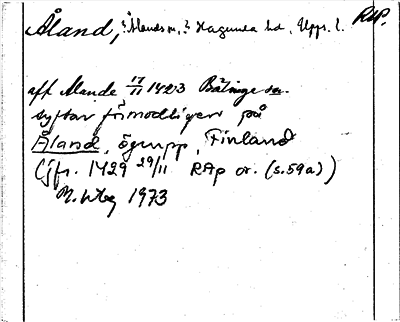 Åland, ? Ålands sn, ? Hagunda hd, Upps. l. RAP.
aff Alande 17/11 1423 Bälinge sn.
syftar förmodligen på
Åland, ögrupp, Finland
(jfr. 1429 29/11 RAp or. (s.59a))
M. Wbg 1973